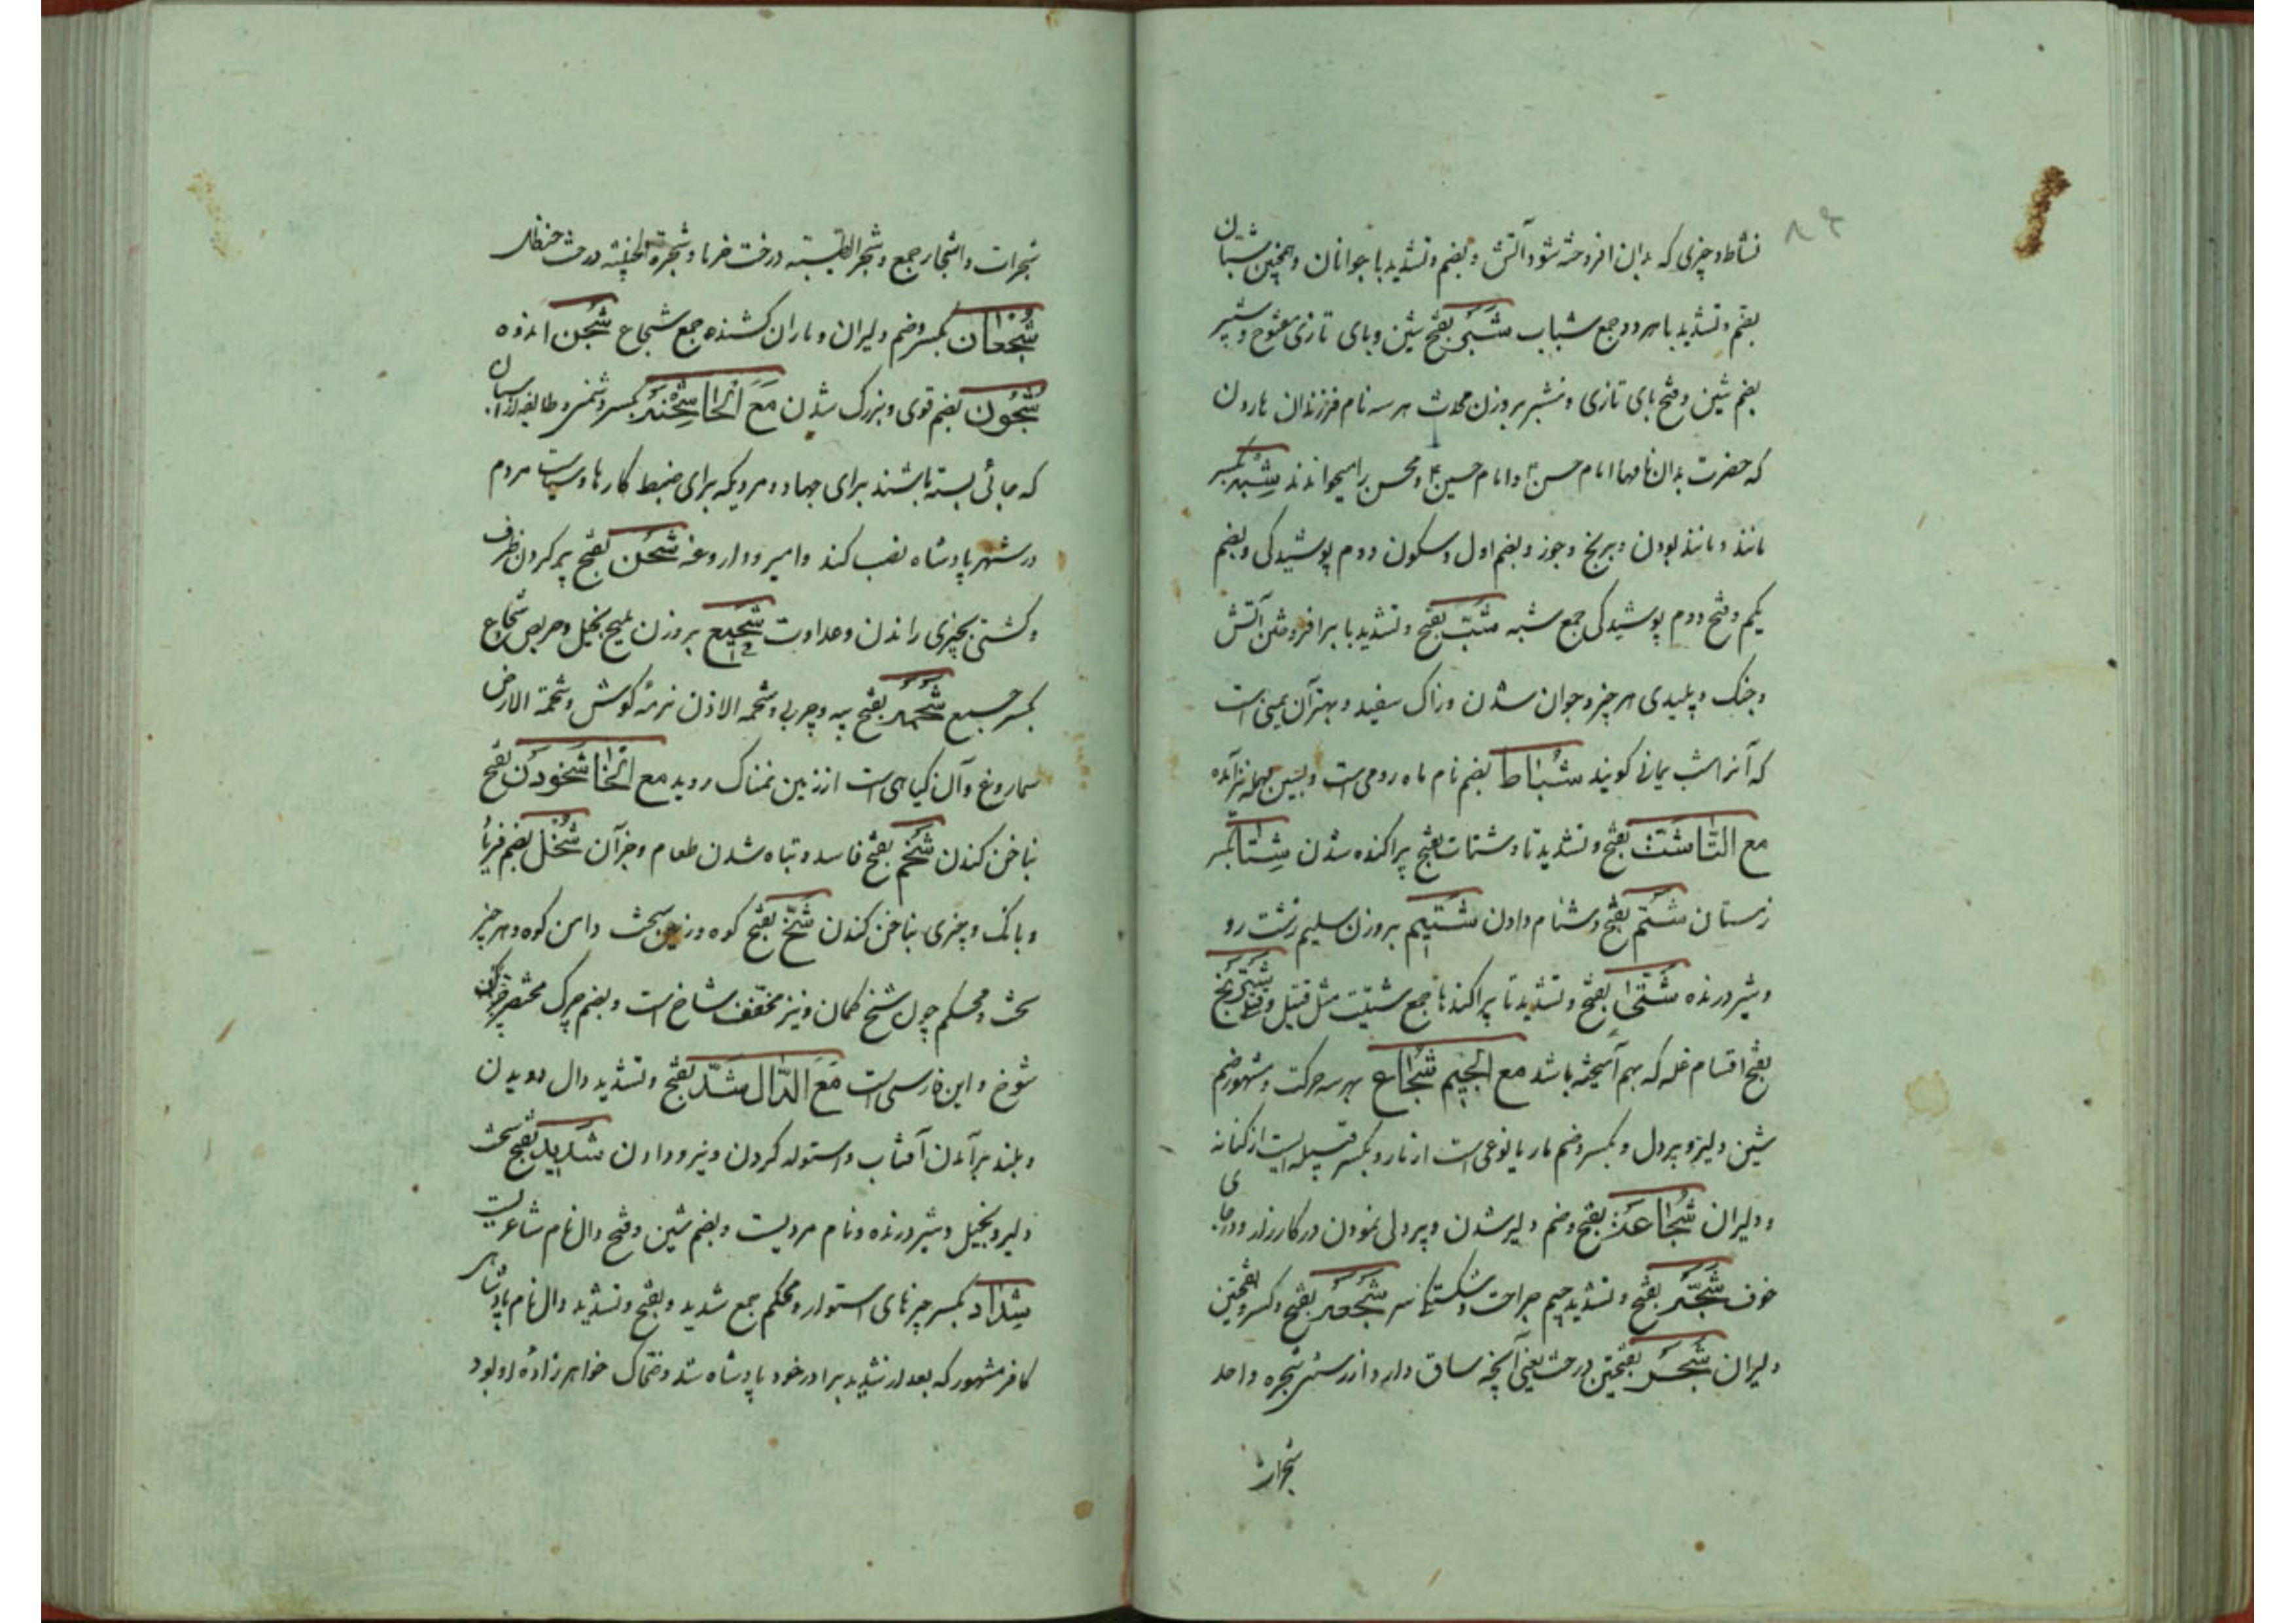 نشاط و چیزی که بدان افروخته شود آتش و بضم و تشدید با جوانان و همچنین شبان
بضم و تشدید با هر دو جمع شباب شَبَّر بفتح شین و بای تازی مفتوح و شبیر
بضم شین و فتح بای تازی و مشبر بر وزن محدث هر سه نام فرزندان هارون
که حضرت بدان نامها امام حسن و امام حسین و محسن را میخواندند شِبْه بکسر
مانند و مانند بودن و برنج و جوز و بضم اول و سکون دوم پوشیدگی و بضم
یکم و فتح دوم پوشیدگی جمع شبه شَبّ بفتح و تشدید با برافروختن آتش
و جنک و پلیدی هر چیز و جوان شدن و زاک سفید و بهترآن یمنی است
که آنرا شب یمانی کویند شُبَاط بضم نام ماه رومی است و بسین مهمله نیز آمده
مع التّا شَتّ بفتح و تشدید تا و شتات بفتح پراکنده شدن شِتَا بکسر
زمستان شَتْم بفتح دشنام دادن شَتِیم بر وزن سلیم زشت رو
و شیر درنده شَتّی بفتح و تشدید تا پراکندها جمع شتیت مثل قتیل و قتلی
بفتح اقسام غله که بهم آمیخته باشد مع الجیم شُجَاع بهر سه حرکت و مشهور ضم
شین دلیر و پردل و بکسر و ضم مار یا نوعی است از مار و بکسر قبیله ایست از کنانه
و دلیران شُجَاعَة بفتح و ضم دلیر شدن و پردلی نمودن در کارزار و در جای
خوف شَجَّه بفتح و تشدید جیم جراحت و شکستگی سر شَجعه بفتح و کسر و بفتحتین
دلیران شَجَر بفتحتین درخت یعنی آنچه ساق دارد از رستنی شجره واحد
شجرات
شجرات و اشجار جمع و شجرة الطیبته درخت خرما و شجرة الخبیثه درخت حنظل
شُجْعَان بکسر و ضم دلیران و ماران کشنده جمع شجاع شَجَن اندوه
شُجُون بضم قوی و بزرک شدن مَعَ الْحَا شِحْنَه بکسر دشمنی و طایفه از اسپان
که جائی بسته باشند برای جهاد و مردیکه برای ضبط کارها و سیاست مردم
در شهر پادشاه نصب کند و امیر و داروغه شَحْن بفتح پر کردن ظرف
و کشتی بچیزی و راندن و عداوت شَحِیح بر وزن ملیح بخیل و حریص شحاح
بکسر جمع شَحْمَه بفتح پیه و چربی و شحمه الاذن نرمه کوش و شحمة الارض
سماروغ و آن کیاهی است از زمین نمناک روید مع الخا شَخُودَن بفتح
بناخن کندن شَخْم بفتح فاسد و تباه شدن طعام و جز آن شُخْل بضم فریاد
و بانک و چیزی بناخن کندن شَخّ بفتح کوه و زمین سخت دامن کوه و هر چیز
سخت و محکم چون شخ کمان و نیز مخفف شاخ است و بضم چرک مختصر
شوخ و این فارسی است مَعَ الدّال شَدّ بفتح و تشدید دال دویدن
و بلند برآمدن آفتاب و استوار کردن و نیرو دادن شَدِید بفتح سخت
دلیر و بخیل و شیر درنده و نام مردیست و بضم شین و فتح دال نام شاعریست
شِدَاد بکسر چیزهای استوار و محکم جمع شدید و بفتح و تشدید دال نام پادشاهی
کافر مشهور که بعد از شدید برادر خود پادشاه شد و ضحاک خواهرزاده او بود